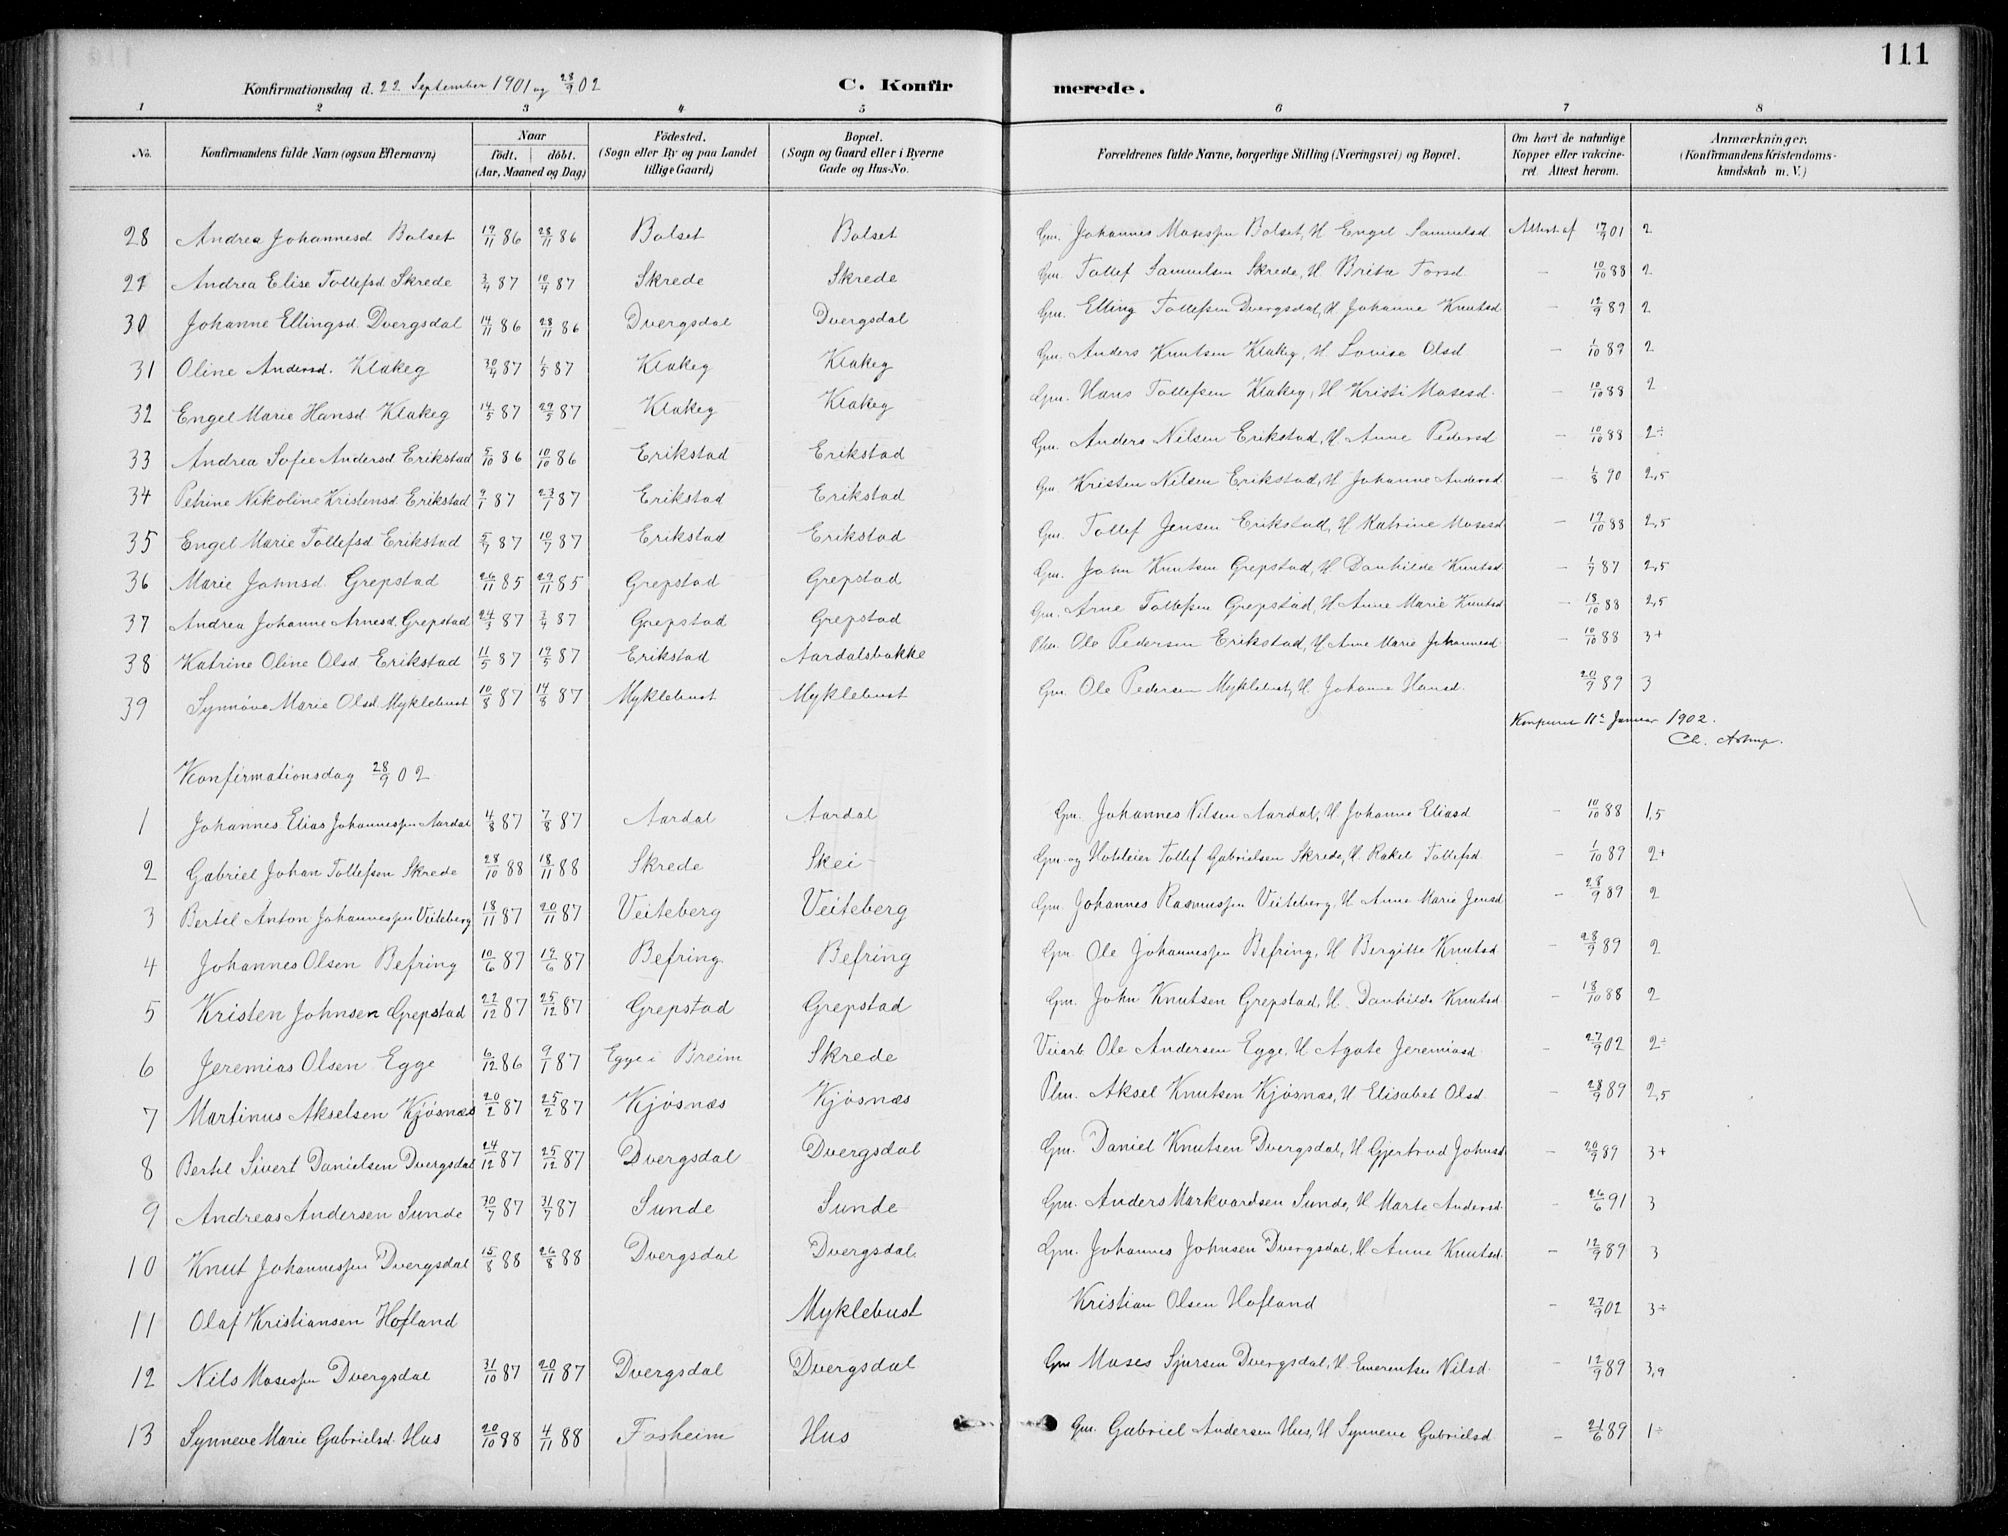 111
Konfirmationsdag d. 22 September 1901 og 28/9 02 C. Konfirmerede.
1 2 3 4 5 6 7 8
No. Konfirmandens fulde Navn (ogsaa Efternavn) Naar født. døbt. (Aar, Maaned og Dag) Fødested. (Sogn eller By og paa Landet tillige Gaard) Bopæl. (Sogn og Gaard eller i Byerne Gade og Hus-No. Forældrenes fulde Navne, borgerlige Stilling (Næringsvei) og Bopæl. Om havt de naturlige Kopper eller vakcineret. Attest herom. Anmærkninger. (Konfirmandens Kristendomskundskab m. V.)
28 Andrea Johannesd Bolset 19/11 86 28/11 86 Bolset Bolset Gm. Johannes Mosessen Bolset, H Engel Samuelsd. Attest af 17/9 01 2
29 Andrea Elise Tollefsd Skrede 3/4 87 10/4 87 Skrede Skrede Gm. Tollef Samuelsen Skrede, H Brita Torsd — 10/10 88 2
30 Johanne Ellingsd. Dvergsdal 14/11 86 28/11 86 Dvergsdal Dvergsdal Gm. Elling Tollefsen Dvergsdal, H Johanne Knutsd — 12/9 89 2
31 Oline Andersd. Klakeg 30/4 87 1/5 87 Klakeg Klakeg Gm. Anders Knutsen Klakeg, H Lovise Olsd — 1/10 89 2
32 Engel Marie Hansd Klakeg 14/5 87 29/5 87 Klakeg Klakeg Gm. Hans Tollefsen Klakeg, H Kristi Mosesd. — 10/10 88 2
33 Andrea Sofie Andersd Erikstad 5/10 86 10/10 86 Erikstad Erikstad Gm. Anders Nilsen Erikstad, H Anne Pedersd — 10/10 88 2÷
34 Petrine Nikoline Kristensd Erikstad 9/1 87 23/1 87 Erikstad Erikstad Gm. Kristen Nilsen Erikstad, H Johanne Andersd — 1/8 90 2,5
35 Engel Marie Tollefsd Erikstad 5/7 87 10/7 87 Erikstad Erikstad Gm. Tollef Jensen Erikstad, H Katrine Mosesd — 19/10 88 2,5
36 Marie Johnsd Grepstad 26/11 85 29/11 85 Grepstad Grepstad Gm. John Knutsen Grepstad, H Danhilde Knutsd. — 1/9 87 2,5
37 Andrea Johanne Arnesd. Grepstad 24/3 87 3/4 87 Grepstad Grepstad Gm. Arne Tollefsen Grepstad, H Anne Marie Knutsd — 18/10 88 2,5
38 Katrine Oline Olsd Erikstad 11/5 87 19/5 87 Erikstad Aardalsbakke Plm. Ole Pedersen Erikstad, H Anne Marie Johannesd — 10/10 88 3+
39 Synnøve Marie Olsd Myklebust 10/8 87 14/8 87 Myklebust Myklebust Gm. Ole Pedersen Myklebust, H. Johanne Hansd. 20/9 89 3
Januar 1902.
Konfirmationsdag 28/9 02
1 Johannes Elias Johannessen Aardal 4/8 87 7/8 87 Aardal Aardal Gm. Johannes Nilsen Aardal, H Johanne Eliasd — 10/10 88 1,5
2 Gabriel Johan Tollefsen Skrede 28/10 88 18/11 88 Skrede Skei Gm. og Hotleier Tollef Gabrielsen Skrede, H. Rakel Tollefsd. — 1/10 89 2+
3 Bertel Anton Johannessen Veiteberg 18/11 87 20/11 87 Veiteberg Veiteberg Gm. Johannes Rasmussen Veiteberg, H Anne Marie Jensd — 28/9 89 2
4 Johannes Olsen Befring 10/6 87 19/6 87 Befring Befring Gm. Ole Johannessen Befring, H Bergitte Knutsd — 28/9 89 2
5 Kristen Johnsen Grepstad 22/12 87 25/12 87 Grepstad Grepstad Gm. John Knutsen Grepstad, H. Danhilde Knutsd — 18/10 88 2
6 Jeremias Olsen Egge 6/12 86 9/1 87 Egge i Breim Skrede Veiarb Ole Andersen Egge, H Agate Jeremiasd. — 27/9 02 2÷
7 Martinus Akselsen Kjøsnæs 20/2 87 25/2 87 Kjøsnæs Kjøsnæs Plm. Aksel Knutsen Kjøsnæs, H Elisabet Olsd. — 28/9 89 2,5
8 Bertel Sivert Danielsen Dvergsdal 24/12 87 25/12 87 Dvergsdal Dvergsdal Gm. Daniel Knutsen Dvergsdal, H Gjertrud Johnsd — 20/9 89 3+
9 Andreas Andersen Sunde 30/7 87 31/7 87 Sunde Sunde Gm. Anders Markvardsen Sunde, H Marte Andersd. — 26/6 91 3
10 Knut Johannessen Dvergsdal 15/8 88 26/8 88 Dvergsdal Dvergsdal Gm. Johannes Johnsen Dvergsdal, H Anne Knutsd — 12/9 89 3
11 Olaf Kristiansen Hofland Myklebust Kristian Olsen Hofland — 27/9 02 3÷
12 Nils Mosessen Dvergsdal 31/10 87 20/11 87 Dvergsdal Dvergsdal Gm Moses Sjursen Dvergsdal, H. Emerentse Nilsd. — 12/9 89 3,9
13 Synneve Marie Gabrielsd. Hus 20/10 88 4/11 88 Fosheim Hus Gm. Gabriel Andersen Hus, H Synneve Gabrielsd — 21/6 89 1÷